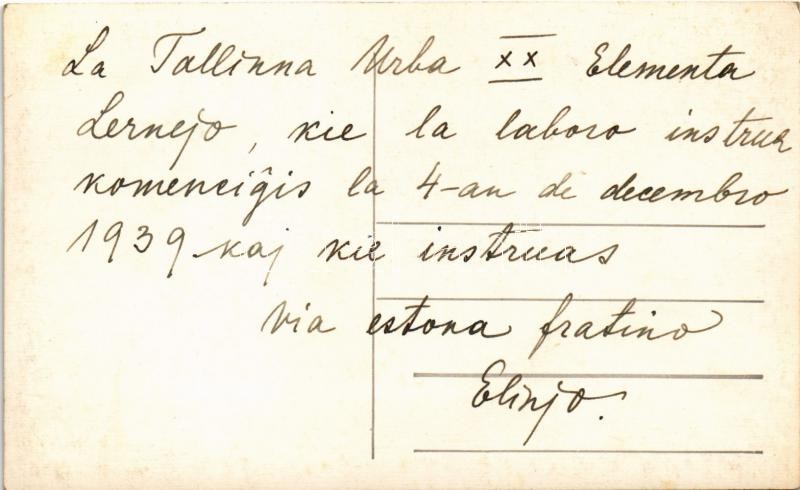 La Tallinna Urba XX Elementa
Lernejo, kie la laboro instrua
komenciĝis la 4-an de decembro
1939 kaj kie instruas
via estona fratino
Elinjo.